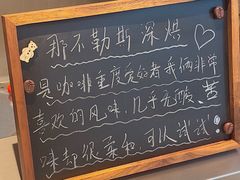 那不勒斯深烘
是咖啡重度爱好者我俩非常
喜欢的风味，几乎无酸、苦
味却很柔和，可以试试！